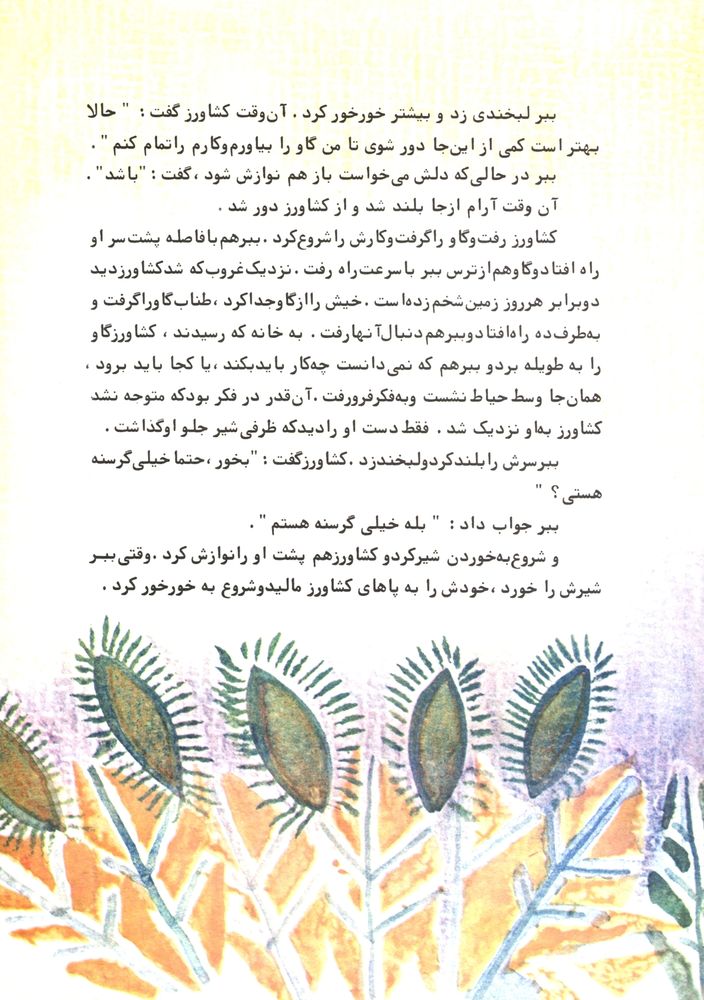 ببر لبخندی زد و بیشتر خورخور کرد . آن‌وقت کشاورز گفت : " حالا
بهتر است کمی از این‌جا دور شوی تا من گاو را بیاورم‌وکارم راتمام کنم " .
ببر در حالی‌که دلش می‌خواست باز هم نوازش شود ، گفت : "باشد" .
آن وقت آرام ازجا بلند شد و از کشاورز دور شد .
کشاورز رفت‌وگاو راگرفت‌وکارش راشروع‌کرد .ببرهم‌بافاصله پشت‌سر او
راه افتادوگاوهم‌ازترس ببر باسرعت‌راه رفت . نزدیک‌غروب‌که شدکشاورزدید
دوبرابر هرروز زمین‌شخم‌زده‌است . خیش راازگاوجداکرد ،طناب‌گاوراگرفت و
به‌طرف‌ده راه‌افتادوببرهم‌دنبال‌آنهارفت . به خانه که رسیدند ، کشاورزگاو
را به طویله بردو ببرهم که نمی‌دانست چه‌کار بایدبکند ،یا کجا باید برود ،
همان‌جا وسط حیاط نشست وبه‌فکرفرورفت .آن‌قدر در فکر بودکه متوجه نشد
کشاورز به‌او نزدیک شد . فقط دست او رادیدکه ظرفی‌شیر جلو اوگذاشت .
ببرسرش رابلندکردولبخندزد .کشاورزگفت : "بخور ،حتما خیلی‌گرسنه
هستی ؟ "
ببر جواب داد : " بله خیلی گرسنه هستم " .
و شروع‌به‌خوردن شیرکردو کشاورزهم پشت او رانوازش کرد .وقتی‌ببر
شیرش را خورد ،خودش را به پاهای کشاورز مالیدوشروع به خورخور کرد .